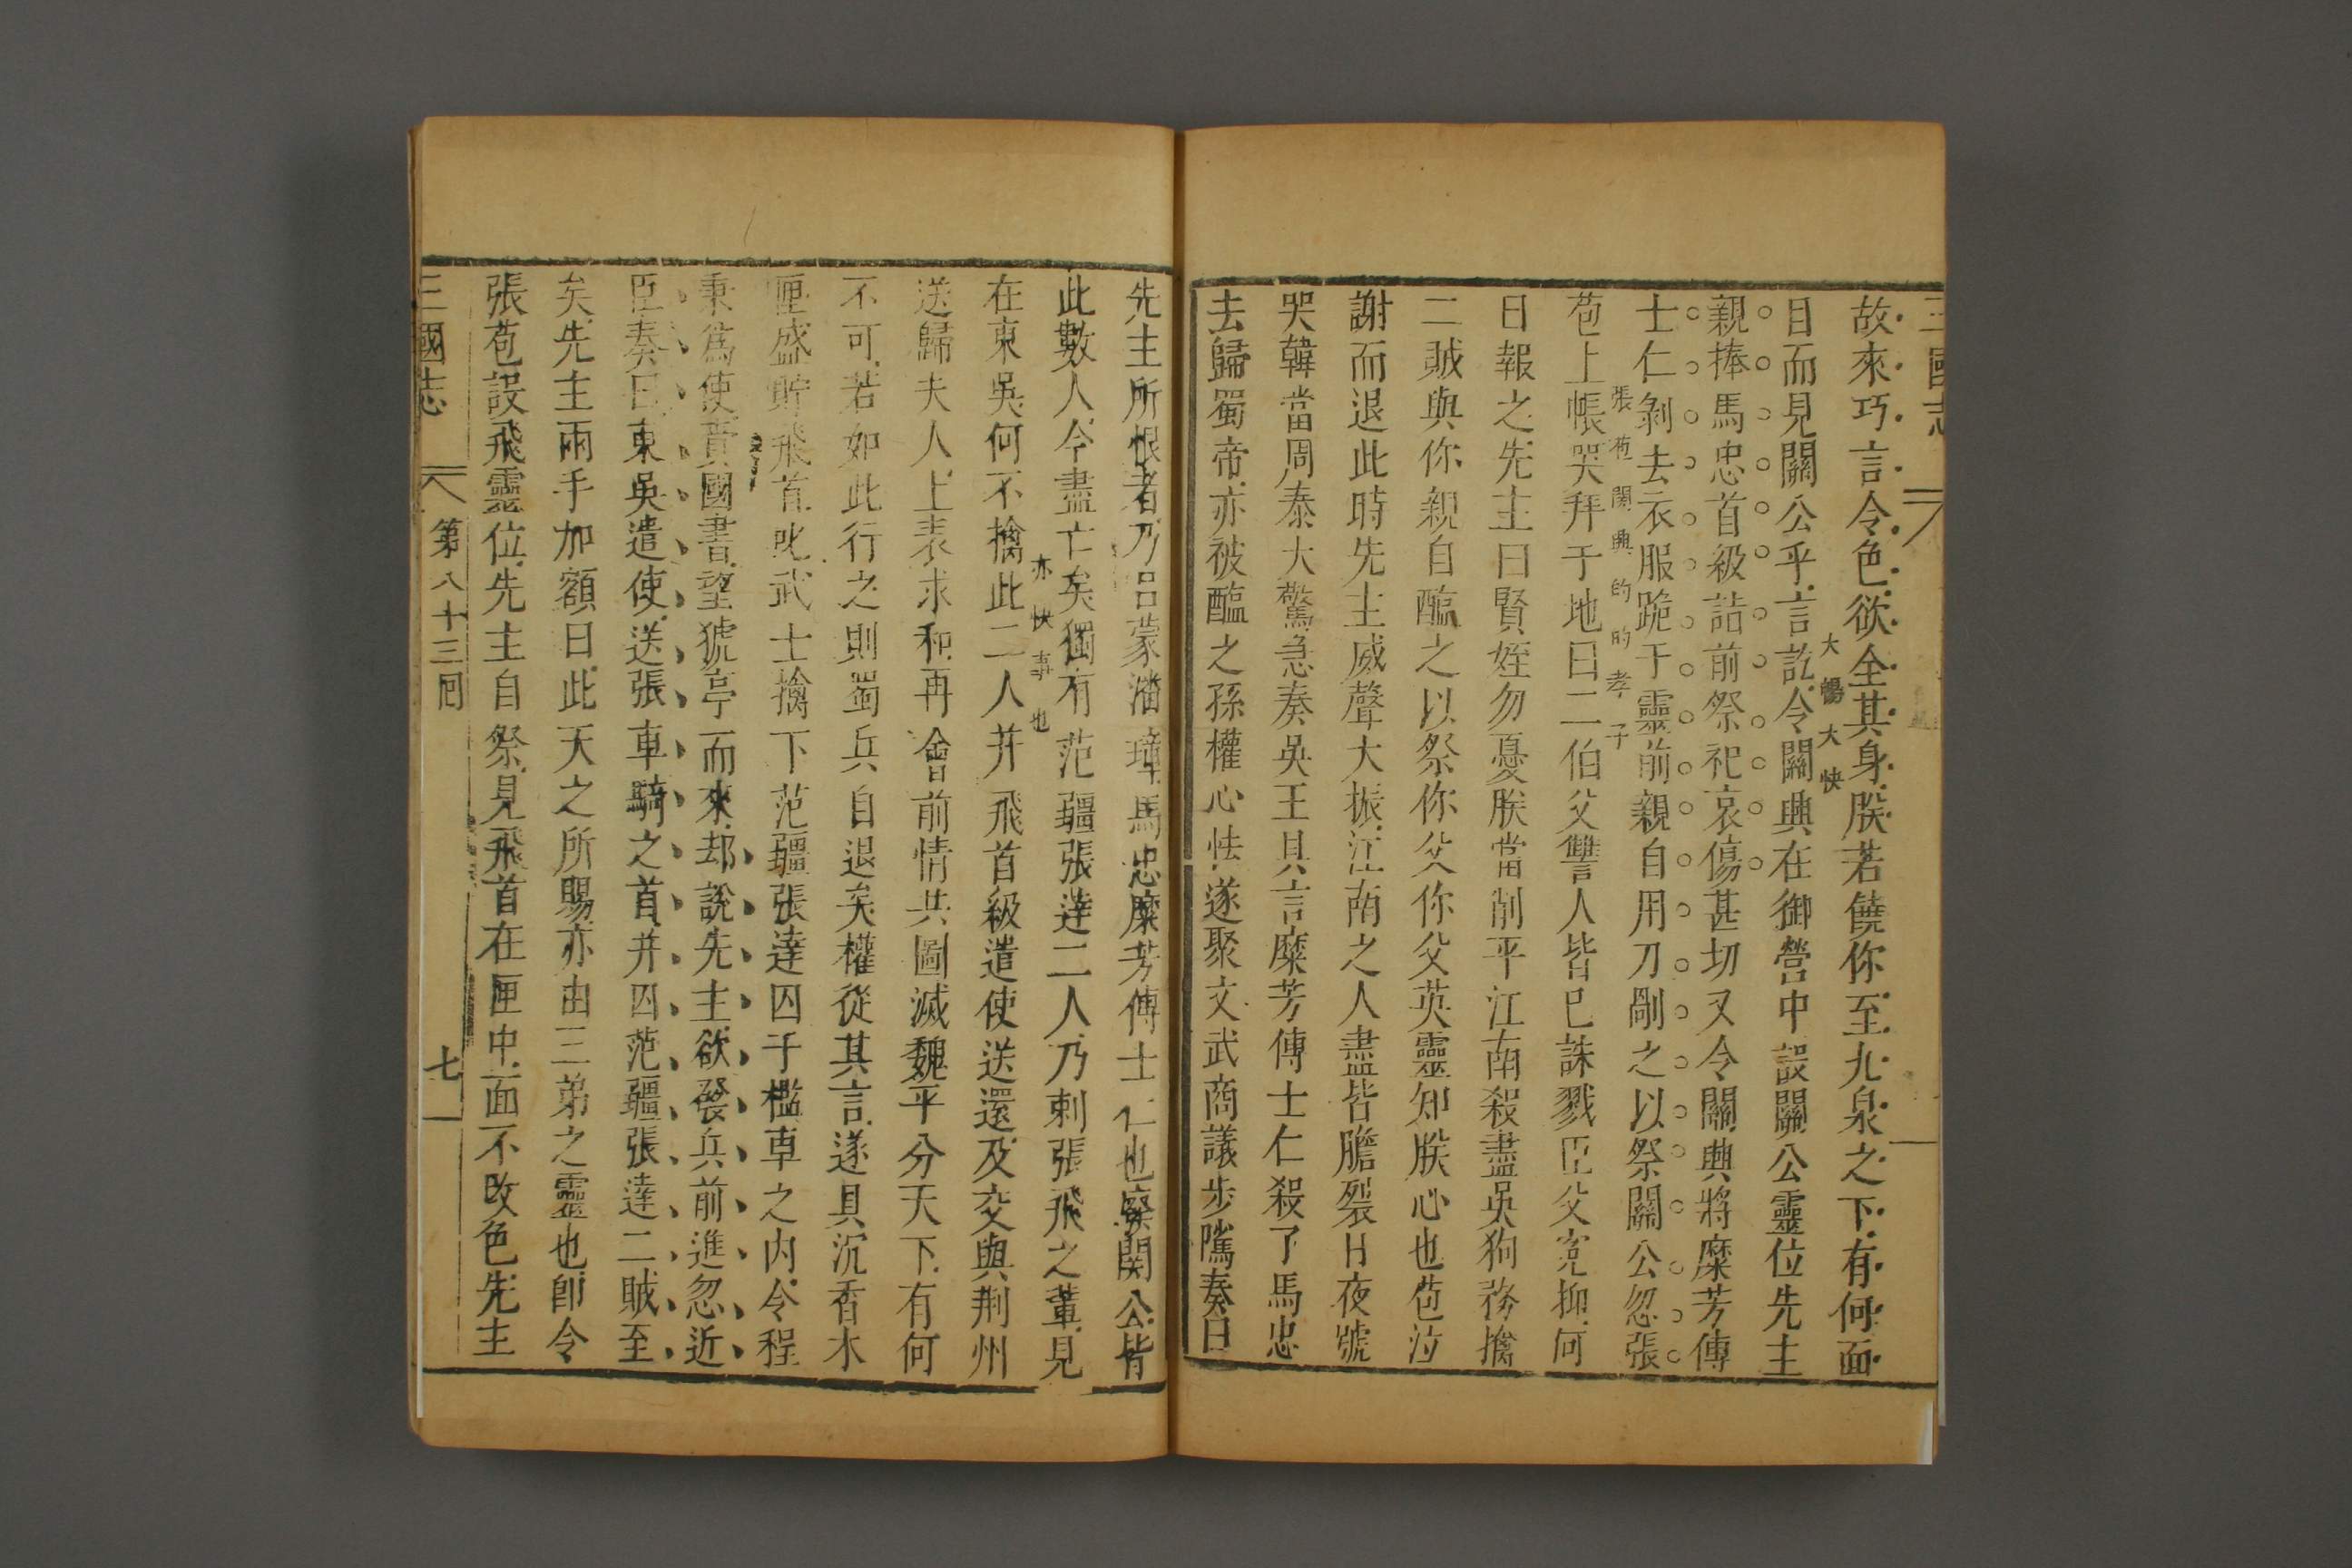 三國志
故來巧言令色欲全其身朕若饒你至九泉之下有何面
大暢大快
目而見關公乎言訖令關興在御營中設關公靈位先主
親捧馬忠首級詣前祭祀哀傷甚切又令關興將糜芳傅
士仁剝去衣服跪于靈前親自用刀剮之以祭關公忽張
張苞關興的的孝子
苞上帳哭拜于地曰二伯父讐人皆已誅戮臣父寃抑何
日報之先主曰賢姪勿憂朕當削平江南殺盡吳狗務擒
二賊與你親自醢之以祭你父你父英靈知朕心也苞泣
謝而退此時先主威聲大振江南之人盡皆膽裂日夜號
哭韓當周泰大驚急奏吳王具言糜芳傅士仁殺了馬忠
去歸蜀帝亦被醢之孫權心怯遂聚文武商議步隲奏曰
先主所恨者乃呂蒙潘璋馬忠糜芳傅士仁也察關公皆
此數人今盡亡矣獨有范疆張達二人乃刺張飛之輩見
亦快事也
在東吳何不擒此二人并飛首級遣使送還及交與荆州
送歸夫人上表求和再會前情共圖滅魏平分天下有何
不可若如此行之則蜀兵自退矣權從其言遂具沉香木
匣盛貯飛首叱武士擒下范疆張達囚于檻車之内令程
秉爲使賫國書望猇亭而來却說先主欲發兵前進忽近
臣奏曰東吳遣使送張車騎之首并囚范疆張達二賊至
矣先主兩手加額曰此天之所賜亦由三弟之靈也卽令
張苞設飛靈位先主自祭見飛首在匣中面不改色先主
三國志 第八十三囘 七